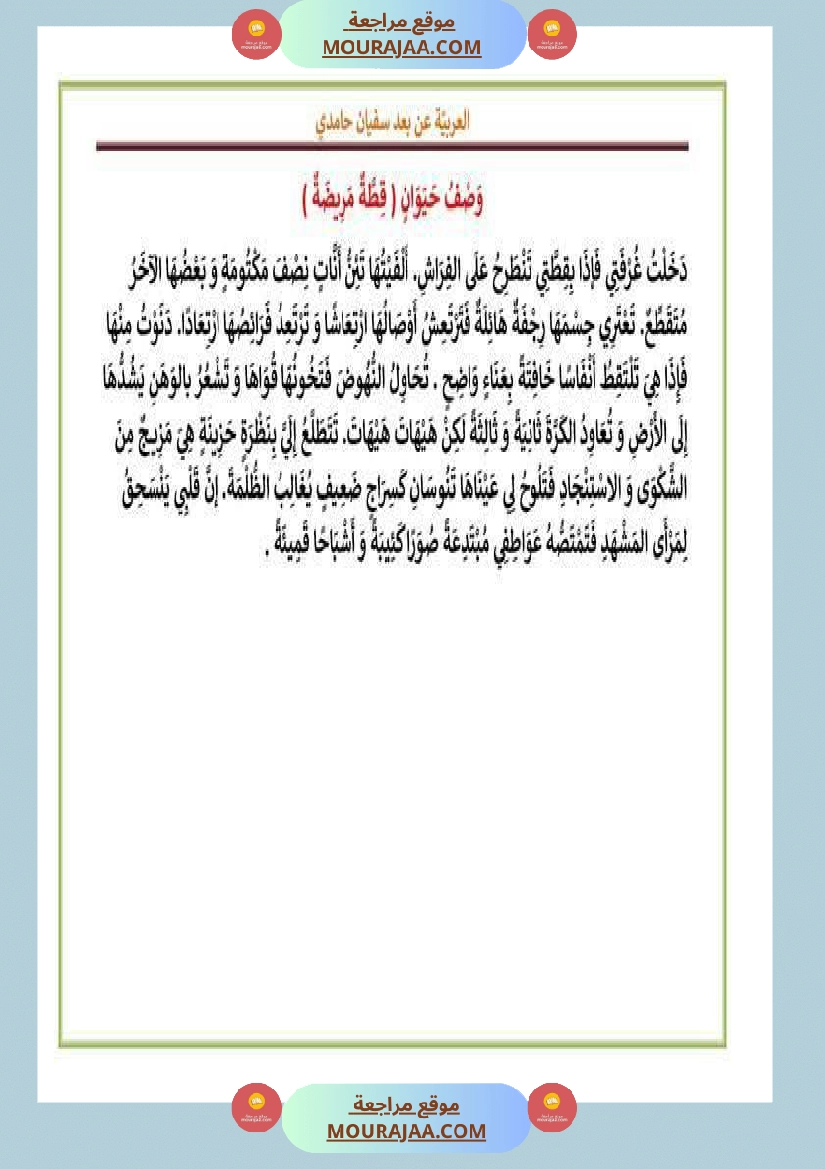 موقع مراجعة
MOURAJAA.COM
العربيّة عن بعد سفيان حامدي
وَصْفُ حَيَوَانٍ ( قِطَّةٌ مَرِيضَةٌ )
دَخَلْتُ غُرْفَتِي فَإِذَا بِقِطَّتِي تَنْطَرِحُ عَلَى الفِرَاشِ. أَلْفَيْتُهَا تَئِنُّ أَنَّاتٍ نِصْفَ مَكْتُومَةٍ وَ بَعْضُهَا الآخَرُ
مُتَقَطِّعٌ. تَعْتَرِي جِسْمَهَا رِجْفَةٌ هَائِلَةٌ فَتَرْتَعِشُ أَوْصَالُهَا ارْتِعَاشًا وَ تَرْتَعِدُ فَرَائِصُهَا ارْتِعَادًا. دَنَوْتُ مِنْهَا
فَإِذَا هِيَ تَلْتَقِطُ أَنْفَاسًا خَافِتَةً بِعَنَاءٍ وَاضِحٍ . تُحَاوِلُ النُّهُوضَ فَتَخُونُهَا قُوَاهَا وَ تَشْعُرُ بِالوَهَنِ يَشُدُّهَا
إِلَى الأَرْضِ وَ تُعَاوِدُ الكَرَّةَ ثَانِيَةً وَ ثَالِثَةً لَكِنْ هَيْهَاتَ هَيْهَاتَ. تَتَطَلَّعُ إِلَيَّ بِنَظْرَةٍ حَزِينَةٍ هِيَ مَزِيجٌ مِنَ
الشَّكْوَى وَ الاسْتِنْجَادِ فَتَلُوحُ لِي عَيْنَاهَا تَنُوسَانِ كَسِرَاجٍ ضَعِيفٍ يُغَالِبُ الظُّلْمَةَ. إِنَّ قَلْبِي يَنْسَحِقُ
لِمَرْأَى المَشْهَدِ فَتَمْتَصُّهُ عَوَاطِفِي مُبْتَدِعَةً صُوَرًا كَئِيبَةً وَ أَشْبَاحًا قَمِيئَةً .
موقع مراجعة
MOURAJAA.COM